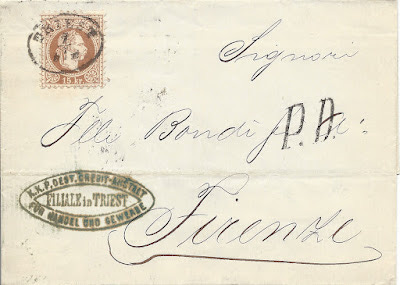 TRIEST
7
15 Kr.
Signori
Flli Bondi
P.D.
K.K.P. OEST. CREDIT-ANSTALT
FILIALE in TRIEST
FÜR HANDEL UND GEWERBE
Firenze